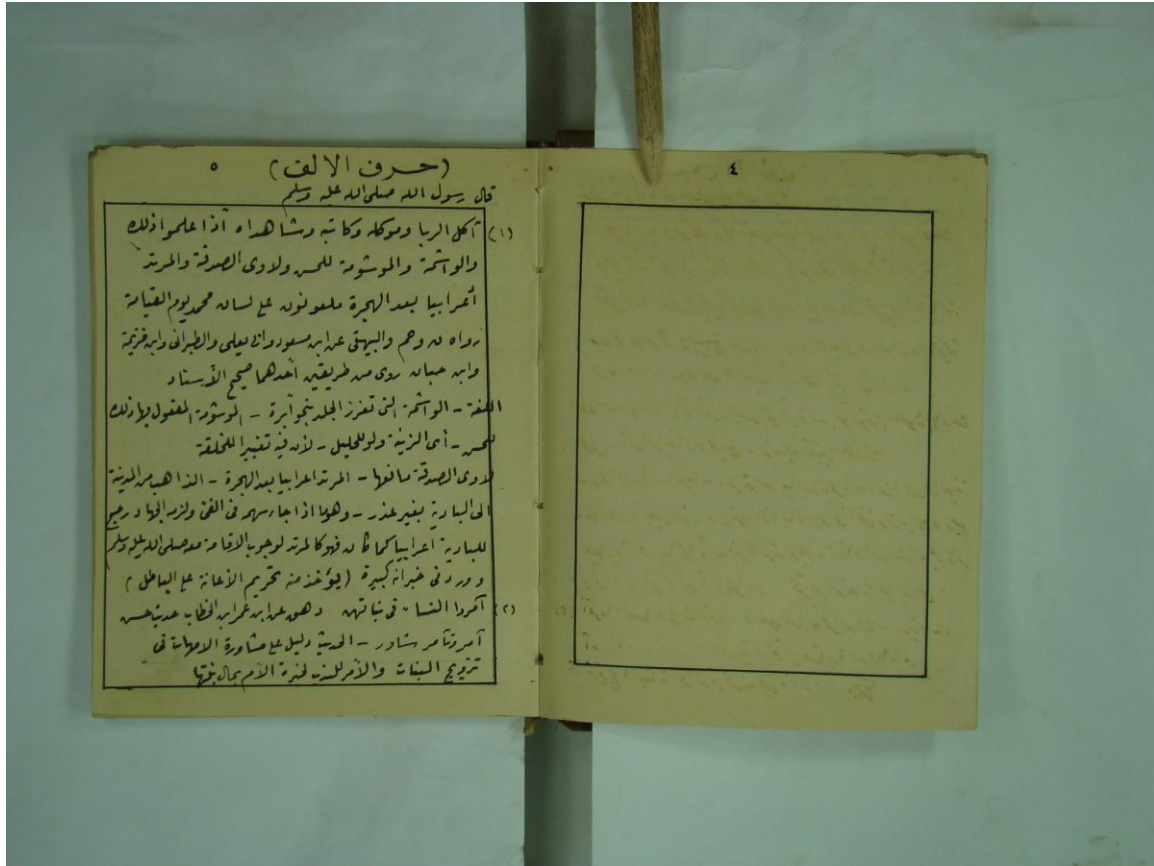 ٤
٥
(حرف الالف)
قال رسول الله صلى الله عليه وسلم
(١) آكل الربا وموكله وكاتبه وشاهداه اذا علموا ذلك
والواشمة والموشومة للحسن ولاوى الصدقة والمرتد
أعرابيا بعد الهجرة ملعونون على لسان محمد يوم القيامة
رواه ن وهم والبيهقى عن ابن مسعود وابى يعلى والطبرانى وابن خزيمة
وابن حبان روى من طريقين أحدهما صحيح الأسناد
اللغة - الواشمة التى تغرز الجلد بنحو أبرة - الموشومة المفعول بها ذلك
للحسن - أى الزينة ولو للحليل - لأن فيه تغيير للخلقة
لاوى الصدقة مانعها - المرتد اعرابيا بعد الهجرة - الذاهب من المدينة
الى البادية بغير عذر - وهو اذا جا سهمه فى الفئ ولزم الجهاد رجع
للبادية اعرابيا كما كان فهو كالمرتد لوجوب الاقامة مع صلى الله عليه وسلم
وورد فى خبر انه كبيرة (يؤخذ منه تحريم الأعانة على الباطل)
(٢) آمروا النساء فى بناتهن د هق عن ابن عمر ابن الخطاب حديث حسن
آمر تآمر شاور - الحديث دليل على مشاورة الامهات فى
تزويج البنات والأمر للندب لخبرة الأم بحال بنتها